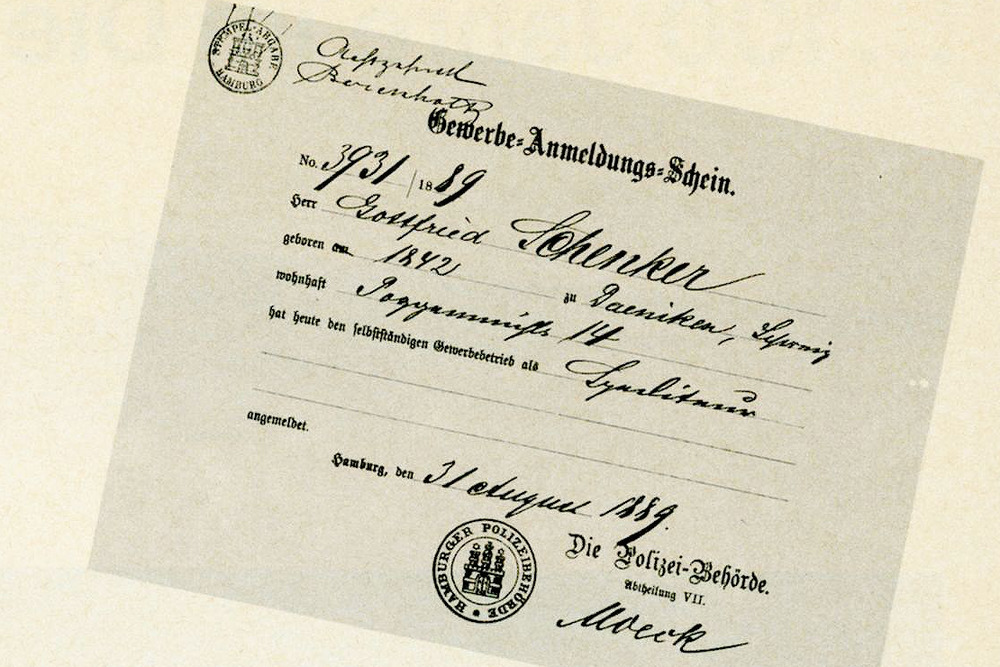 STEMPEL-ABGABE
HAMBURG
Gewerbe-Anmeldungs-Schein.
No. 3931 / 1889
Herr Gottfried Schenker
geboren am 1842 zu Daeniken, Schweiz
wohnhaft Poggenmühle 14
hat heute den selbstständigen Gewerbebetrieb als Spediteur
angemeldet.
Hamburg, den 31 August 1889.
HAMBURGER POLIZEIBEHÖRDE
Die Polizei-Behörde.
Abtheilung VII.
Moeck